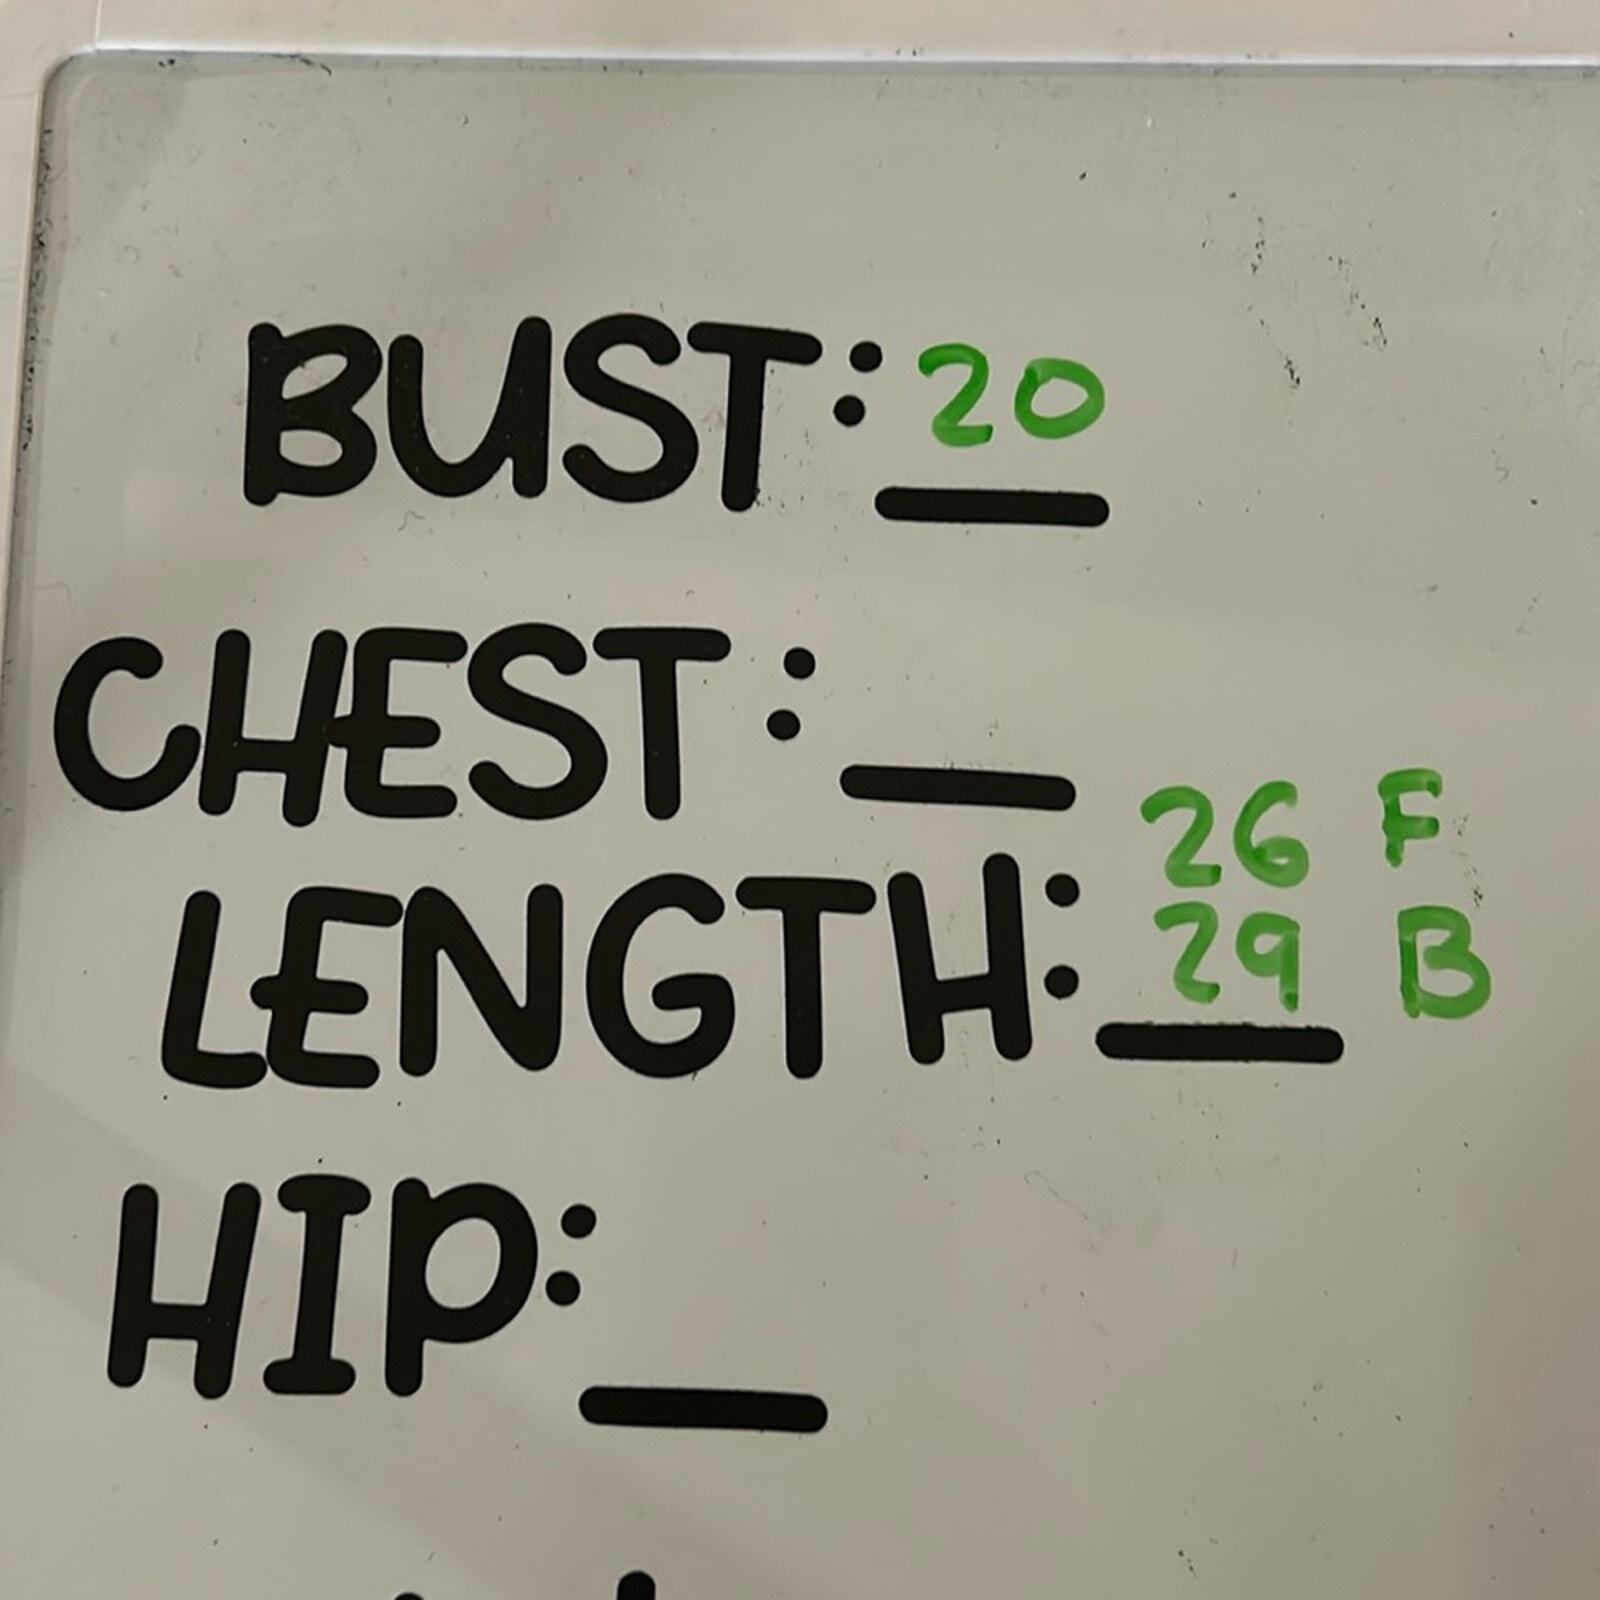 BUST: 20
CHEST:
26 F
LENGTH: 29 B
HIP: